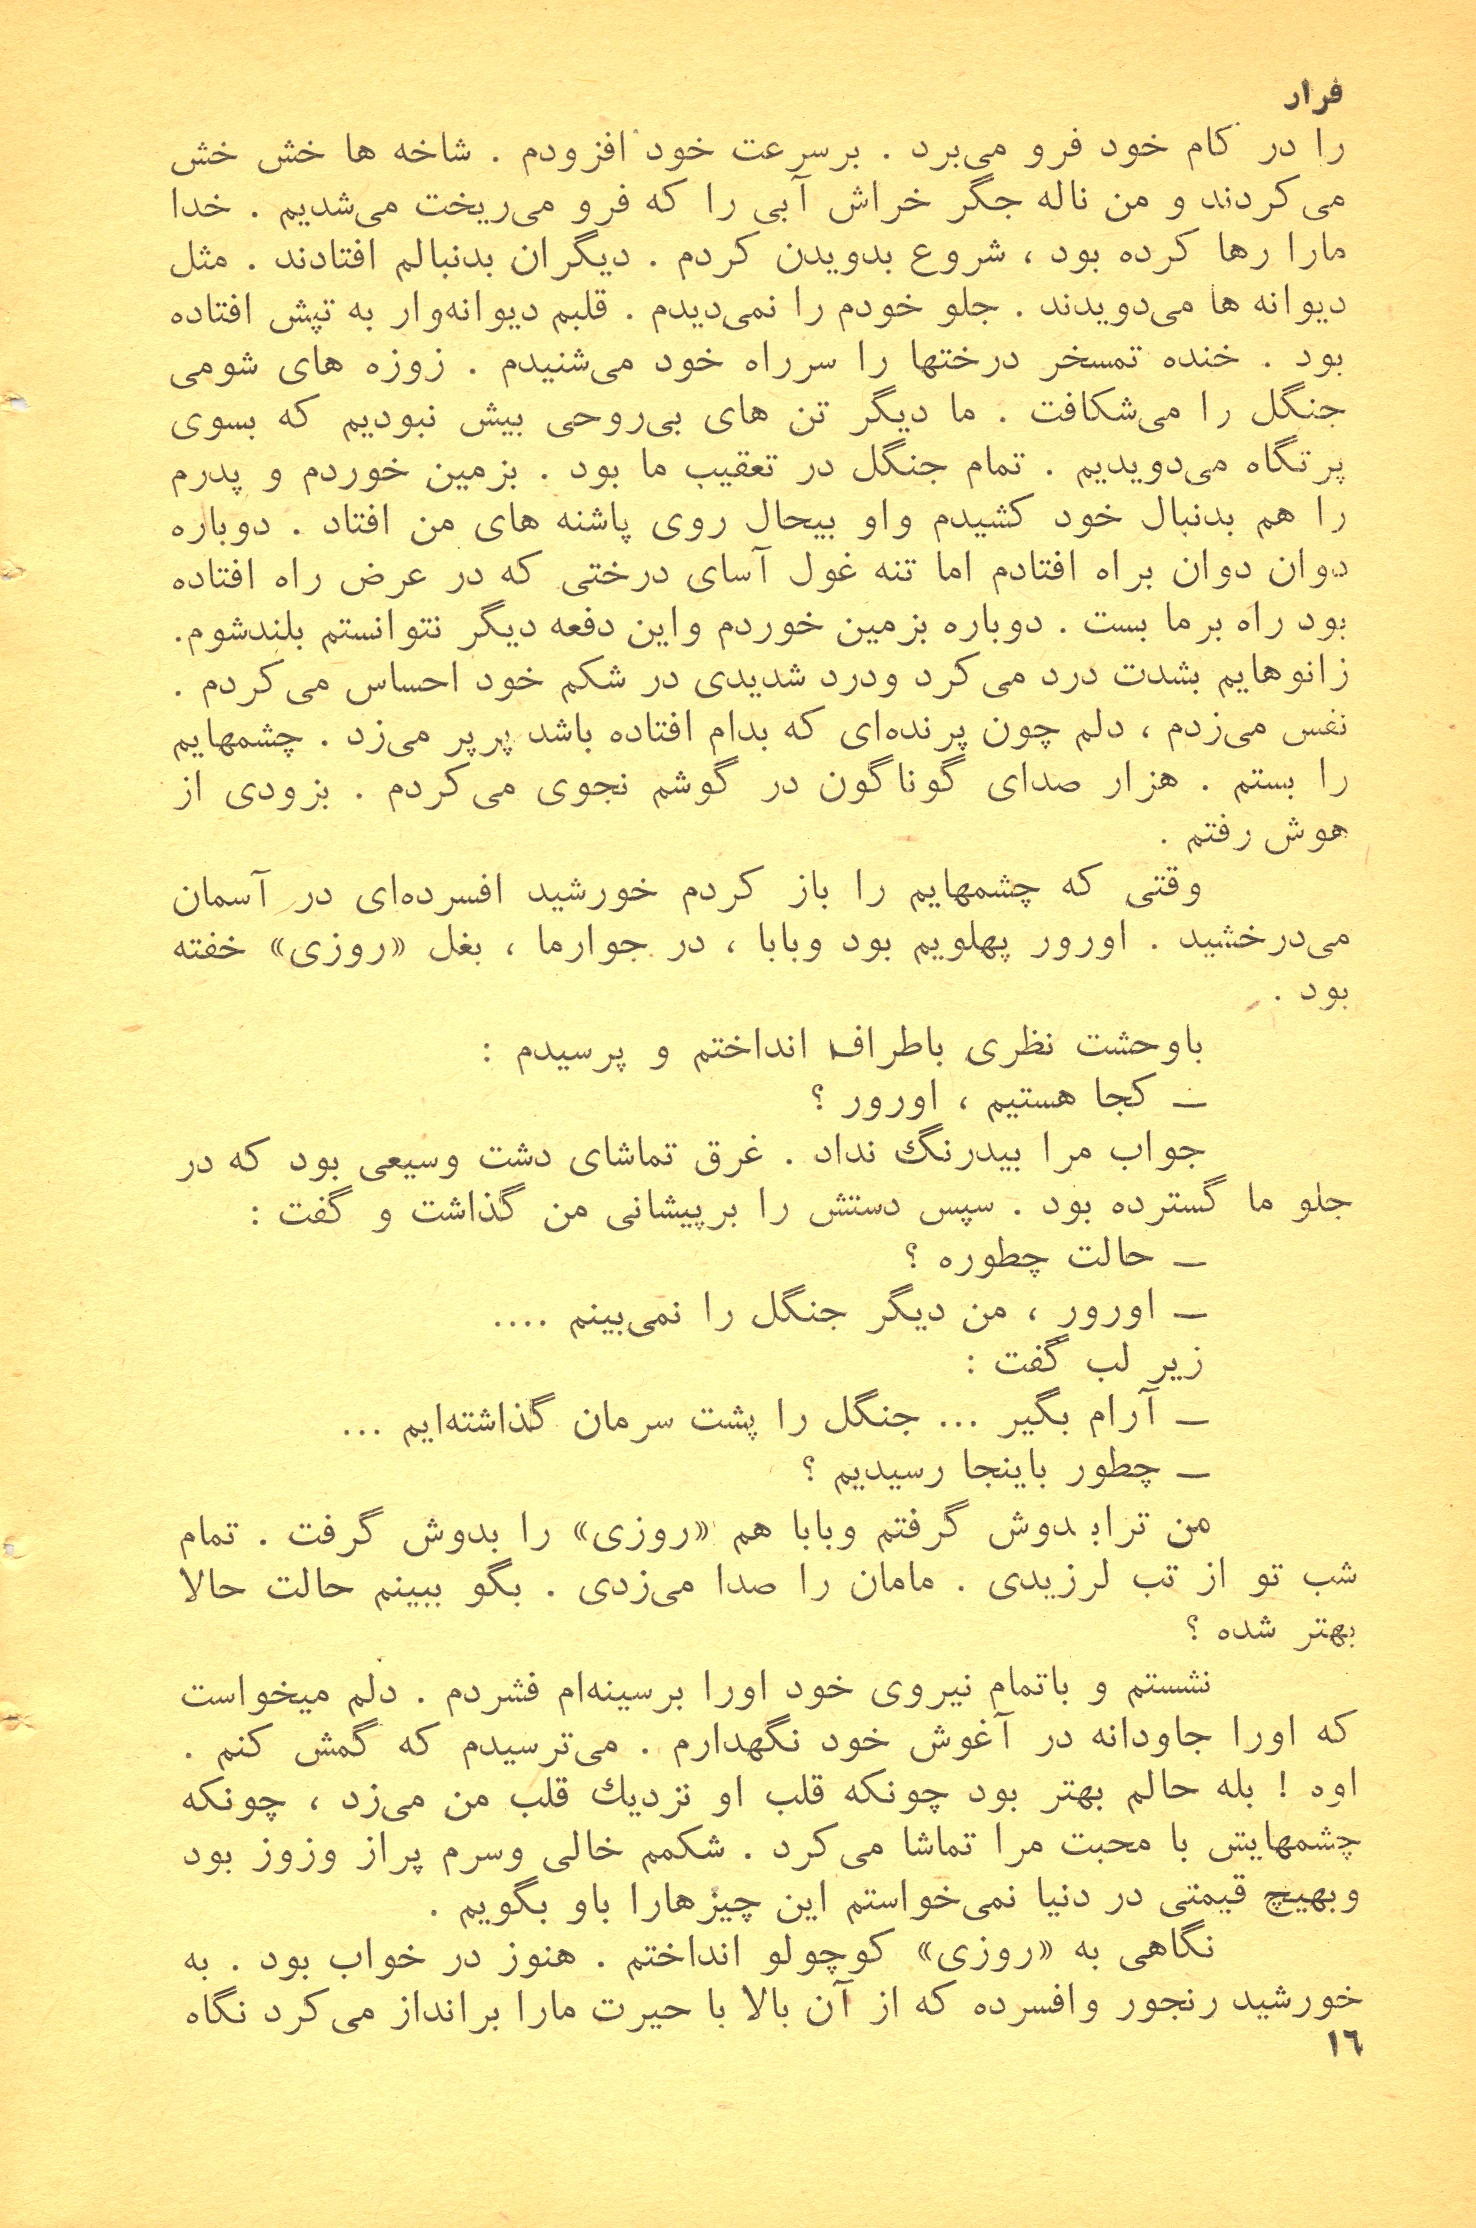 فرار
را در کام خود فرو می‌برد . برسرعت خود افزودم . شاخه ها خش خش
می‌کردند و من ناله جگر خراش آبی را که فرو می‌ریخت می‌شدیم . خدا
مارا رها کرده بود ، شروع بدویدن کردم . دیگران بدنبالم افتادند . مثل
دیوانه ها می‌دویدند . جلو خودم را نمی‌دیدم . قلبم دیوانه‌وار به تپش افتاده
بود . خنده تمسخر درختها را سرراه خود می‌شنیدم . زوزه های شومی
جنگل را می‌شکافت . ما دیگر تن های بی‌روحی بیش نبودیم که بسوی
پرتگاه می‌دویدیم . تمام جنگل در تعقیب ما بود . بزمین خوردم و پدرم
را هم بدنبال خود کشیدم واو بیحال روی پاشنه های من افتاد . دوباره
دوان دوان براه افتادم اما تنه غول آسای درختی که در عرض راه افتاده
بود راه برما بست . دوباره بزمین خوردم واین دفعه دیگر نتوانستم بلندشوم.
زانوهایم بشدت درد می‌کرد ودرد شدیدی در شکم خود احساس می‌کردم .
نفس می‌زدم ، دلم چون پرنده‌ای که بدام افتاده باشد پرپر می‌زد . چشمهایم
را بستم . هزار صدای گوناگون در گوشم نجوی می‌کردم . بزودی از
هوش رفتم .
وقتی که چشمهایم را باز کردم خورشید افسرده‌ای در آسمان
می‌درخشید . اورور پهلویم بود وبابا ، در جوارما ، بغل «روزی» خفته
بود .
باوحشت نظری باطراف انداختم و پرسیدم :
ـ کجا هستیم ، اورور ؟
جواب مرا بیدرنگ نداد . غرق تماشای دشت وسیعی بود که در
جلو ما گسترده بود . سپس دستش را برپیشانی من گذاشت و گفت :
ـ حالت چطوره ؟
ـ اورور ، من دیگر جنگل را نمی‌بینم ....
زیر لب گفت :
ـ آرام بگیر ... جنگل را پشت سرمان گذاشته‌ایم ...
ـ چطور باینجا رسیدیم ؟
من ترابدوش گرفتم وبابا هم «روزی» را بدوش گرفت . تمام
شب تو از تب لرزیدی . مامان را صدا می‌زدی . بگو ببینم حالت حالا
بهتر شده ؟
نشستم و باتمام نیروی خود اورا برسینه‌ام فشردم . دلم میخواست
که اورا جاودانه در آغوش خود نگهدارم . می‌ترسیدم که گمش کنم .
اوه ! بله حالم بهتر بود چونکه قلب او نزدیك قلب من می‌زد ، چونکه
چشمهایش با محبت مرا تماشا می‌کرد . شکمم خالی وسرم پراز وزوز بود
وبهیچ قیمتی در دنیا نمی‌خواستم این چیزهارا باو بگویم .
نگاهی به «روزی» کوچولو انداختم . هنوز در خواب بود . به
خورشید رنجور وافسرده که از آن بالا با حیرت مارا برانداز می‌کرد نگاه
١٦